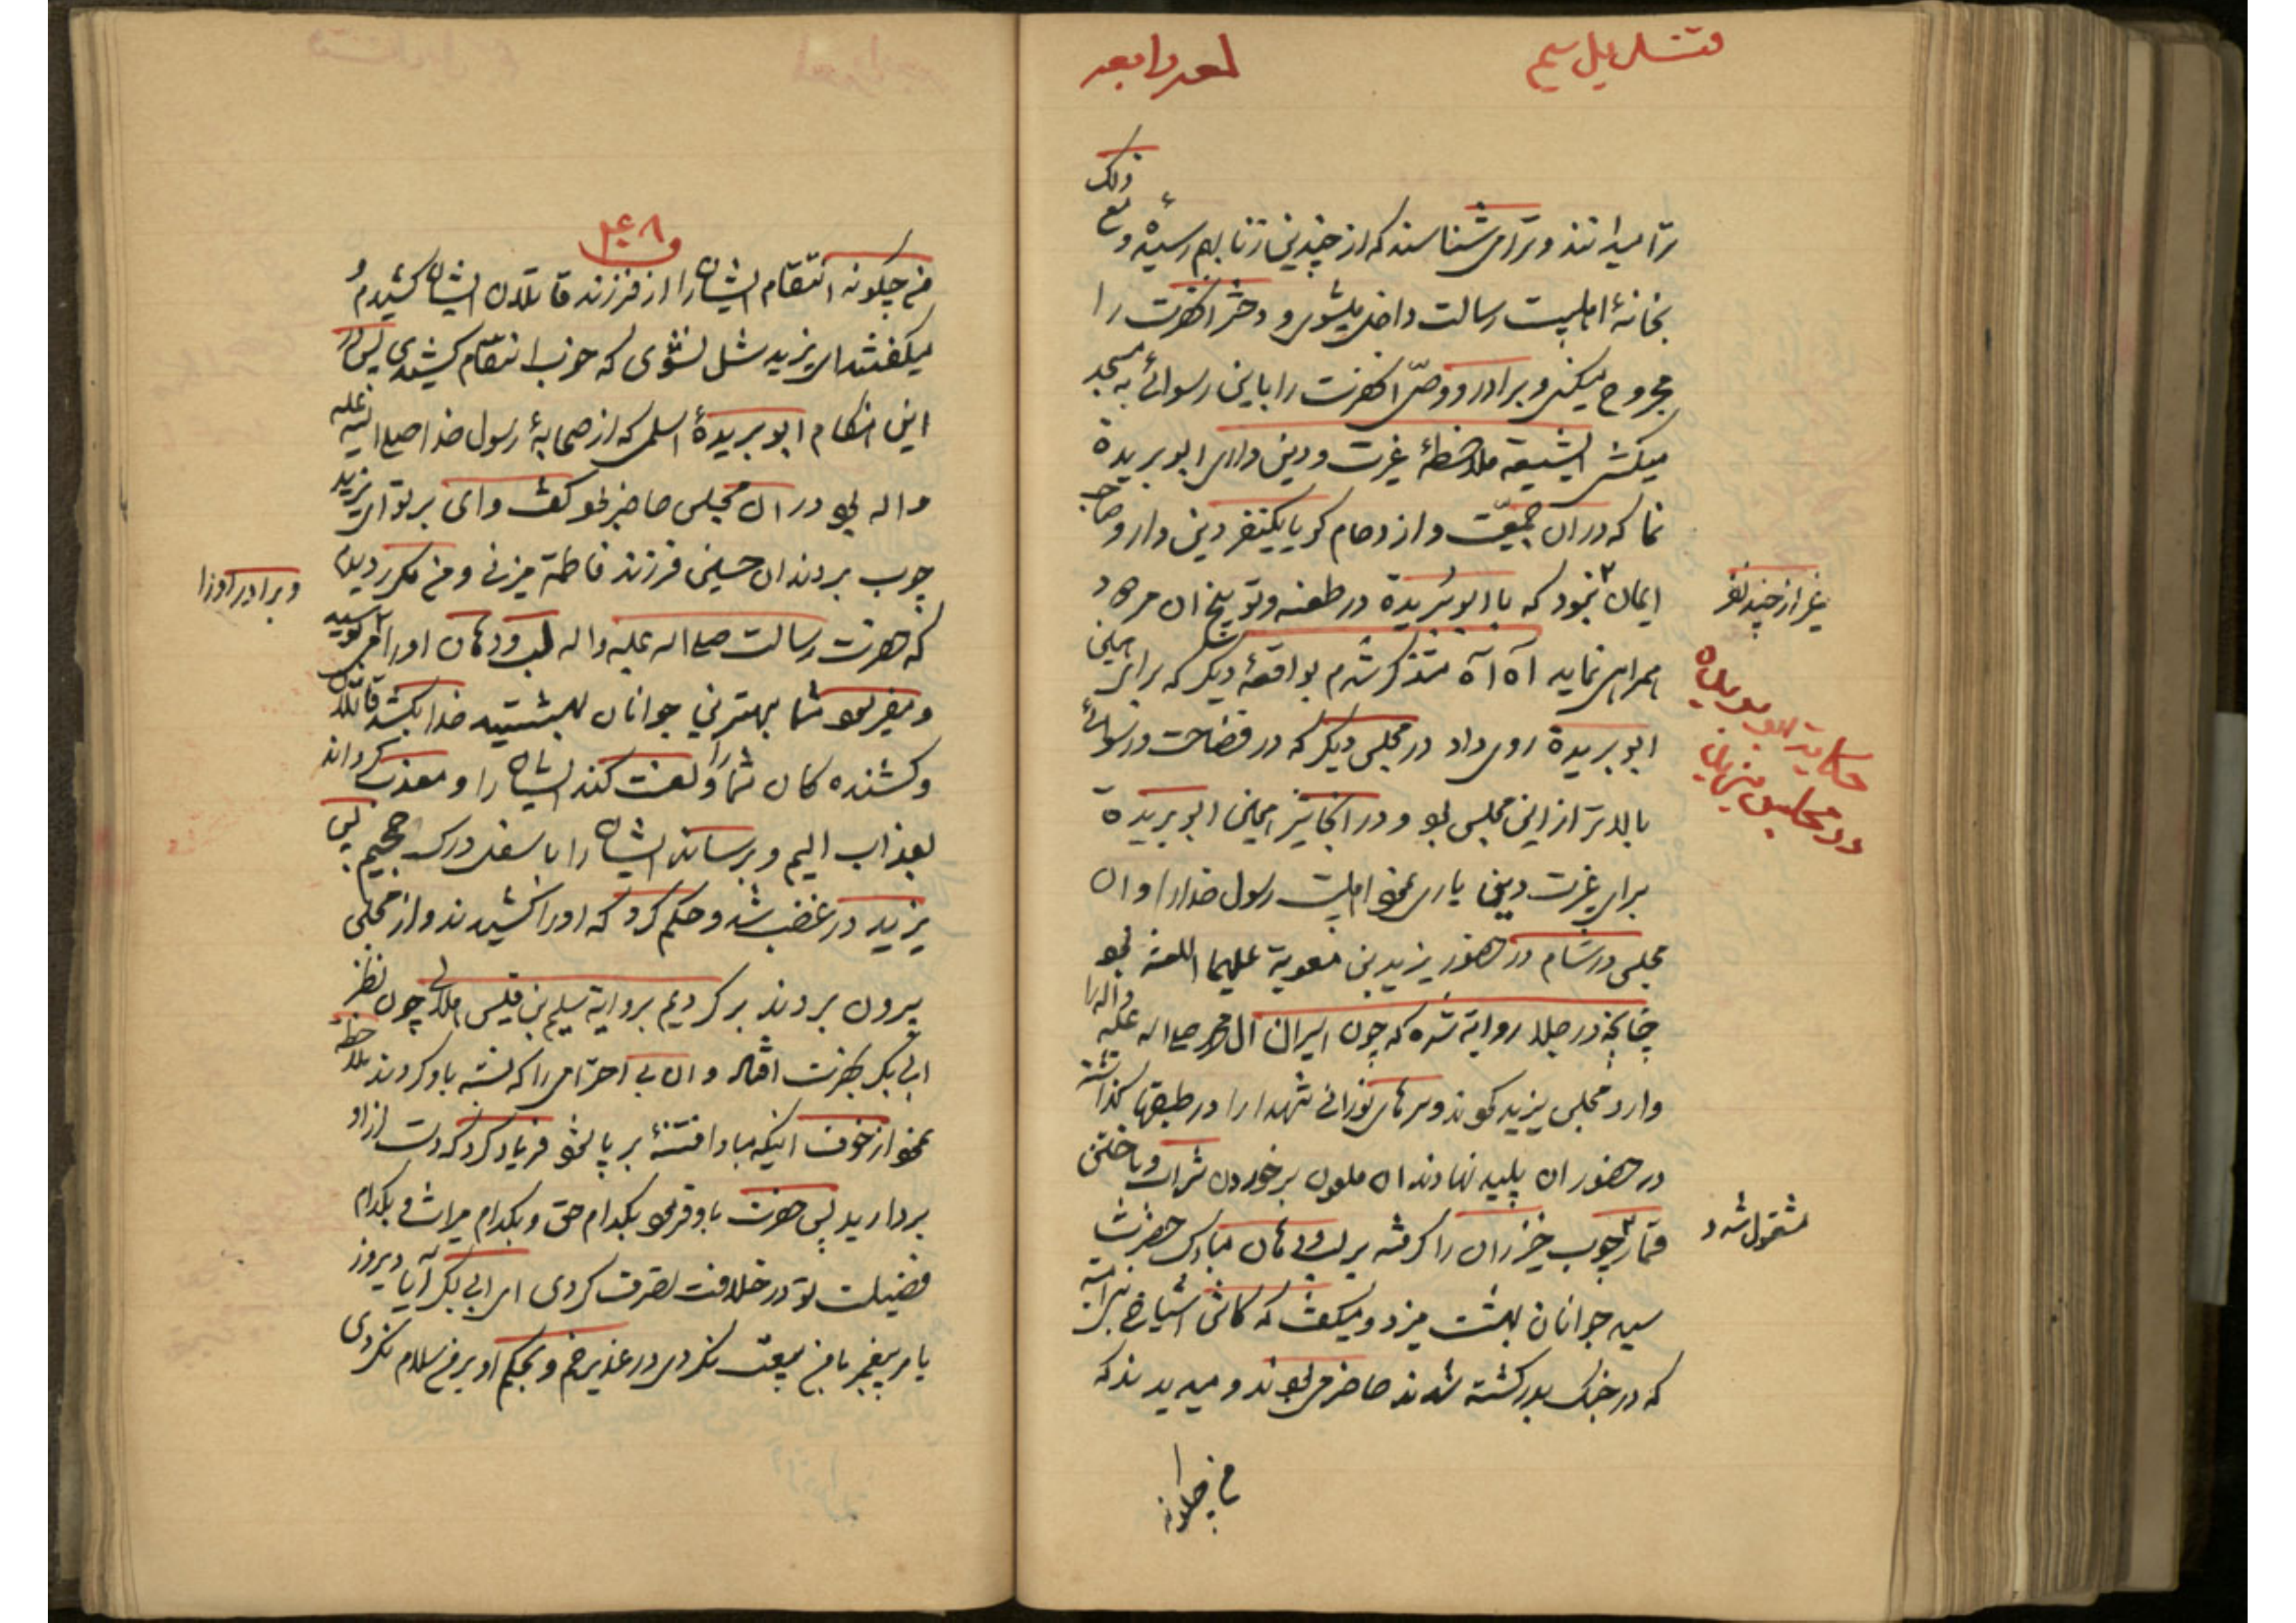 قندیل سیم
لمعه رابعه
ترا میدانند و ترا می‌شناسند که از چندین زنا بهم رسیدهٔ و مع ذلک
بخانهٔ اهلبیت رسالت داخل میشوی و دختر آنحضرت را
مجروح میکنی و برادر و وصیّ آنحضرت را باین رسوائی به مسجد
میکشی ای شیعه ملاحظهٔ غیرت و دین داری ابو بریدة
نما که در ان جمعیّت و ازدحام گویا یکنفر دین دار و صاحب
ایمان نبود که با ابو بریدة در طعنه و توبیخ ان مردود
غیر از چند نفر
همراهی نماید آه آه متذکر شدم بواقعهٔ دیگر که برای همین
حکایت ابو بریده
در مجلس یزید
ابو بریدة روی داد در مجلس دیگر که در فضاحت و رسوائی
بالاتر از این مجلس بود و در انجا نیز همین ابو بریدة
برای غیرت دین یاری نمود اهلبیت رسول خدا را و ان
مجلس در شام در حضور یزید بن معویة علیهما اللعنه بود
چنانچه در جلا روایة شده که چون اسیران ال محمد صلی اله علیه و اله را
وارد مجلس یزید نمودند و سرهای نورانی شهدا را در طبقها گذاشته
در حضور ان پلید نهادند ان ملعون بر خوردن شراب و باختن
قمار چوب خیزران را گرفته بر لب و دهان مبارک حضرت
مشغول شد و
سید جوانان بهشت میزد و میگفت که کاش اشیاخ بنی امیه
که در جنگ بدر کشته شدند حاضر می‌بودند و میدیدند که
من چگونه
۲۴۸
من چگونه انتقام ایشان را از فرزند قاتلان ایشان کشیدم و
میگفتند ای یزید شل نشوی که خوب انتقام کشیدی پس در
این هنگام ابو بریدهٔ اسلمی که از صحابهٔ رسول خدا صلی الله علیه
و اله بود در ان مجلس حاضر بود گفت وای بر تو ای یزید
چوب بر دندان حسین فرزند فاطمة میزنی و من مکرر دیدم
که حضرت رسالت صلی اله علیه و اله لب و دهان او را می‌بوسید
و برادر او را
و میفرمود شما بهترین جوانان بهشتید خدا بکشد قاتلان
و کشنده کان شما را و لعنت کند ایشان را و معذب گرداند
بعذاب الیم و برساند ایشان را باسفل درک جحیم پس
یزید در غضب شد و حکم کرد که او را کشیدند و از مجلس
بیرون بردند بر گردیم بروایة سلیم بن قیس هلالی چون نظر
ابی بکر بحضرت افتاد و ان بی احترامی را که نسبة باو کردند ملاحظه
نمود از خوف اینکه مبادا فتنهٔ بر پا شود فریاد کرد که دست از او
بردارید پس حضرت باو فرمود بکدام حق و بکدام میراث و بکدام
فضیلت تو در خلافت تصرف کردی ای ابی بکر آیا دیروز
بامر پیغمبر با من بیعت نکردی در غدیر خم و بحکم او بر من سلام نکردی